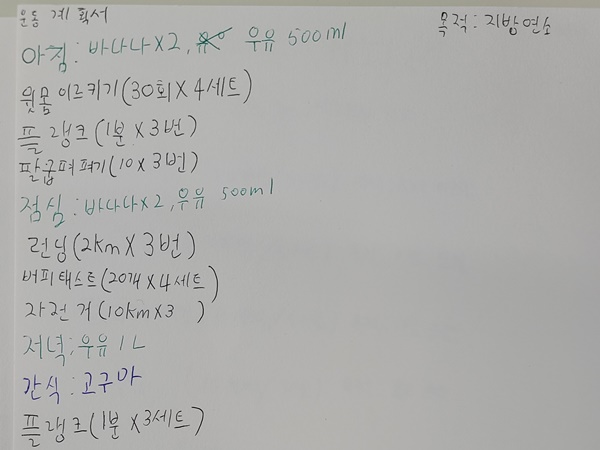 운동 계획서
목적: 지방연소
아침: 바나나X2, 우유 500ml
윗몸이르키기(30회X4세트)
플랭크(1분X3번)
팔굽펴펴기(10X3번)
점심: 바나나X2, 우유 500ml
런닝(2kmX3번)
버피태스트(20개X4세트)
자전거(10kmX3 )
저녁: 우유 1L
간식: 고구마
플랭크(1분X3세트)